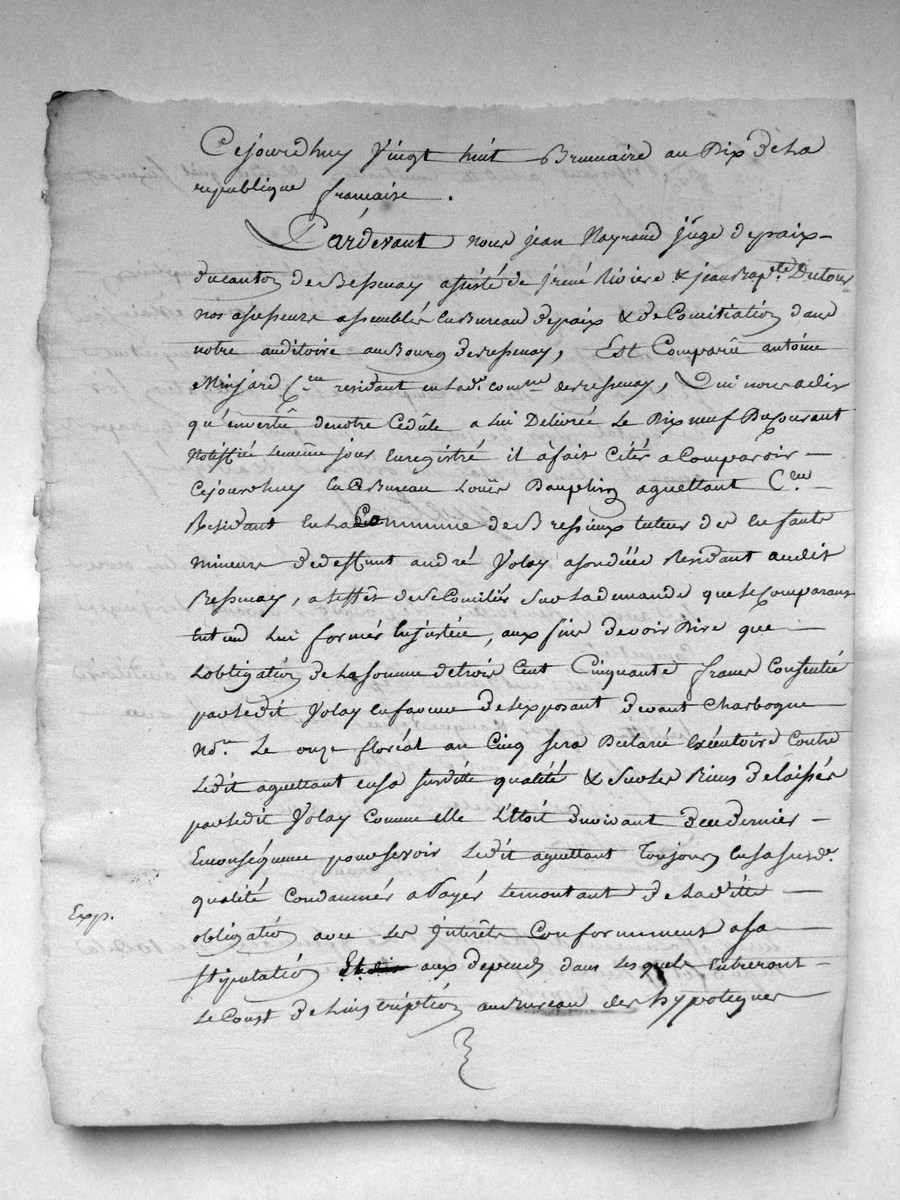 Cejourdhuy vingt huit Brumaire an Dix de la
republique francaise.
Pardevant nous jean Mayraud juge depaix
ducanton de Bessenay assisté de irené Riviere & jean Bapte. Dutour
nos assesseurs assemblés en Bureau depaix & de Conciliation dans
notre auditoire au Bourg de Bessenay, Est Comparû antoine
Minjard Cen. residant en ladte. comme. de Bessenay, Qui nous a dit
qu'envertû denotre Cédule a Lui Délivrée Le Dix neuf Du Courant
Notiffié lememe jour Enregistré il à fait Citér a Comparoir
cejourdhuy en ce Bureau Louïs Dauphin aguettant Cen.
Residant en la Commune de Bressieux tuteur des enfants
mineurs de deffunt andré Volay a son décès Residant audit
Bessenay, a leffet de se Conciliér Sur La demande que le Comparant
Entend Lui formér en justice, aux fins de voir Dire que
Lobligation de La somme de trois Cent Cinquante francs Consentie
par ledit Volay en faveur de lexposant devant Charbogne
Nore. Le onze floréal an Cinq sera Déclarée Exécutoire Contre
Ledit aguettant en sa susditte qualité & Sur les Biens délaissés
par ledit Volay Comme elle L'étoit du vivant de ce dernier
Enconséquence pour se voir Ledit aguettant Toujours en sa susde.
qualité Condamnér a Payér Le montant de Laditte
Exp.
obligation avec Les Intérêts Conformement a sa
stipulation aux depends dans lesquels Entreront
Le Coust de Linscription au Bureau des hypoteques